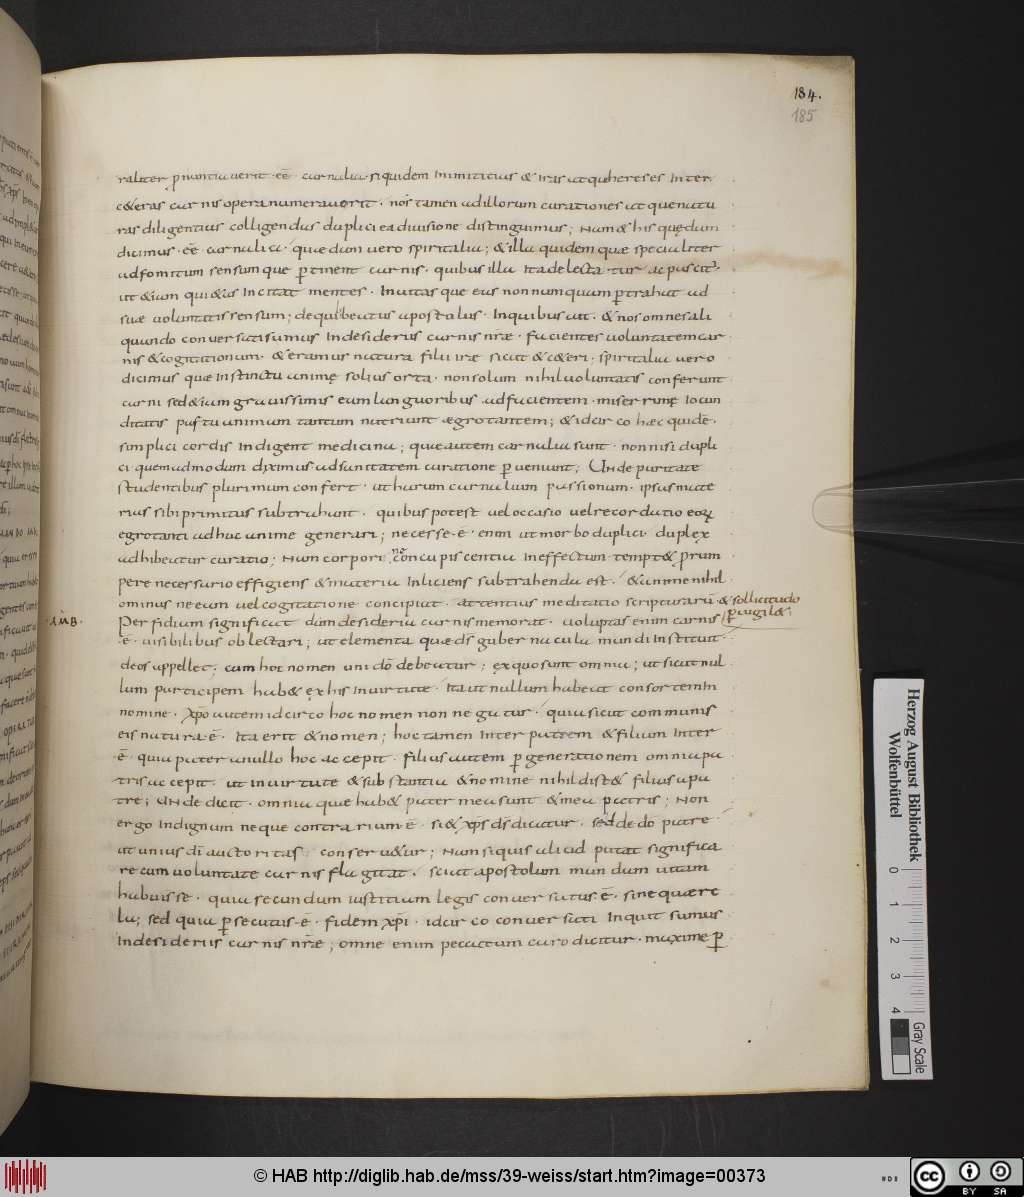 184.
185
raliter pnuntiauerit · eē · carnalia · siquidem inimicicias & iras atq; hereses inter
c&eras carnis opera numerauerit · nos tamen ad illorum curationes atque natu
ras diligentius colligendas duplici ea diuisione distinguimus; Nam & his quędam
dicimus · eē · carnalia · quaedam uero spiritalia; & illa quidem quae specialiter
ad fomitum sensumque ꝑtinent carnis · quibus illa ita delectatur ac pascit᷑ ·
ut &iam qui&as incitat mentes · Inuitasque eas nonnumquam ꝑtrahat ad
suae uoluntatis sensum; de quibus beatus apostolus · Inquibus ait · & nos omnes ali
quando conuersati sumus Indesideriis carnis nr̄ae · facientes uoluntatem car
nis & cogitationum · & eramus natura filii irae sicut & c&eri · spiritalia uero
dicimus quae instinctu animę solius orta · non solum nihil uoluntatis conferunt
carni sed &iam grauissimis eum languoribus adficientem · miserrimę iocun
ditatis pastu animam tantum nutriunt aegrotantem; & idcirco haec quidē ·
simplici cordis indigent medicina; quae autem carnalia sunt · non nisi dupli
ci quemadmodum diximus ad sanitatem curatione ꝑueniunt; Unde puritate
studentibus plurimum confert · ut harum carnalium passionum · ipsas mate
rias sibi primitus subtrahant · quibus potest uel occasio uel recordatio eoꝝ
egrotanti adhuc anime generari; necesse · ē · enim ut morbo duplici duplex
adhibeatur curatio; Nam corpori, ne concupiscentia in effectum tempt& prum
pere necessario effigiens & materia inliciens subtrahenda est · & anime nihil
ominus ne eam uel cogitatione concipiat · attentius meditatio scripturarū · & sollicitudo
ꝑuigil& ·
·AMB·
Perfidiam significat dum desideria carnis memorat · uoluptas enim carnis
· ē · uisibilibus oblectari; ut elementa quae ds̄ gubernacula mundi instituit ·
deos appellet; cum hoc nomen uni dō debeatur; ex quo sunt omnia; ut sicut nul
lum participem hab& ex his in uirtute · Ita ut nullum habeat consortem in
nomine · xp̄o autem idcirco hoc nomen non negatur · quia sicut communis
eis natura · ē · Ita erit & nomen; hoc tamen inter patrem & filium inter
· ē · quia pater a nullo hoc accepit · filius autem ꝑ generationem omnia pa
tris accepit · ut in uirtute & substantia & nomine nihil dist& filius a pa
tre; Unde dicit · omnia que hab& pater mea sunt & mea patris; Non
ergo indignum neque contrarium · ē · si & xp̄s ds̄ dicatur · sed de dō patre ·
ut unius dī auctoritas conseru&ur; Nam siquis alicid putat significa
re cum uoluntate carnis flagitat · sciat apostolum mundam uitam
habuisse · quia secundum iustitiam legis conuersatus · ē · sine quaere
la; sed quia ꝑsecutus · ē · fidem xp̄i · idcirco conuersati inquit sumus
Indesideriis carnis nr̄ae; omne enim peccatum caro dicitur · maxime ꝑ
Herzog August Bibliothek
Wolfenbüttel
0
1
2
3
4
Gray Scale
© HAB http://diglib.hab.de/mss/39-weiss/start.htm?image=00373
cc
BY
SA